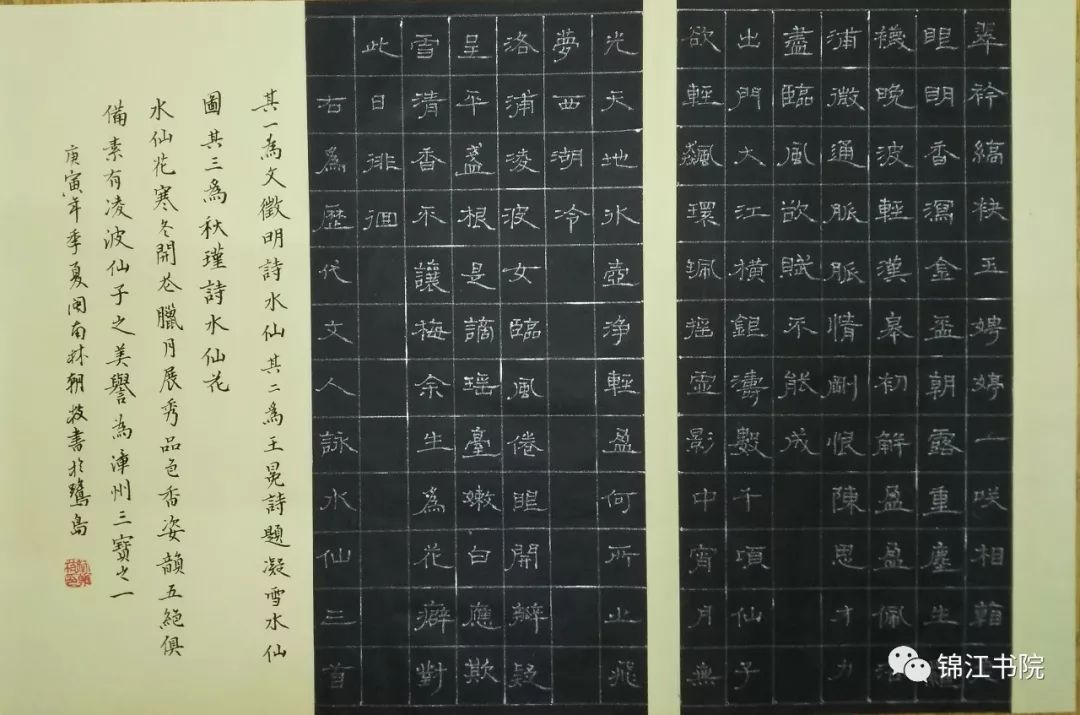 翠衿縞袂玉娉婷一咲相
眼明香瀉金盃朝露重塵生
襪晚波輕漢皋初解盈盈佩
浦微通脈脈情剛恨陳思才力
盡臨風欲賦不能成
出門大江橫銀濤數千頃仙子
欲輕飆環珮摇靈影中宵月無
光天地氷壺淨輕盈何所止飛
夢西湖冷
洛浦淩波女臨風倦眼開瓣疑
呈平盞根是謫瑶臺嫩白應欺
雪清香不讓梅余生為花癖對
此日徘徊
右為歷代文人詠水仙三首
其一為文徵明詩水仙其二為王冕詩題凝雪水仙
圖其三為秋瑾詩水仙花
水仙花寒冬開花臘月展秀品色香姿韻五絕俱
備素有凌波仙子之美譽為漳州三寶之一
庚寅年季夏閩南林朝枝書於鷺島
锦江书院